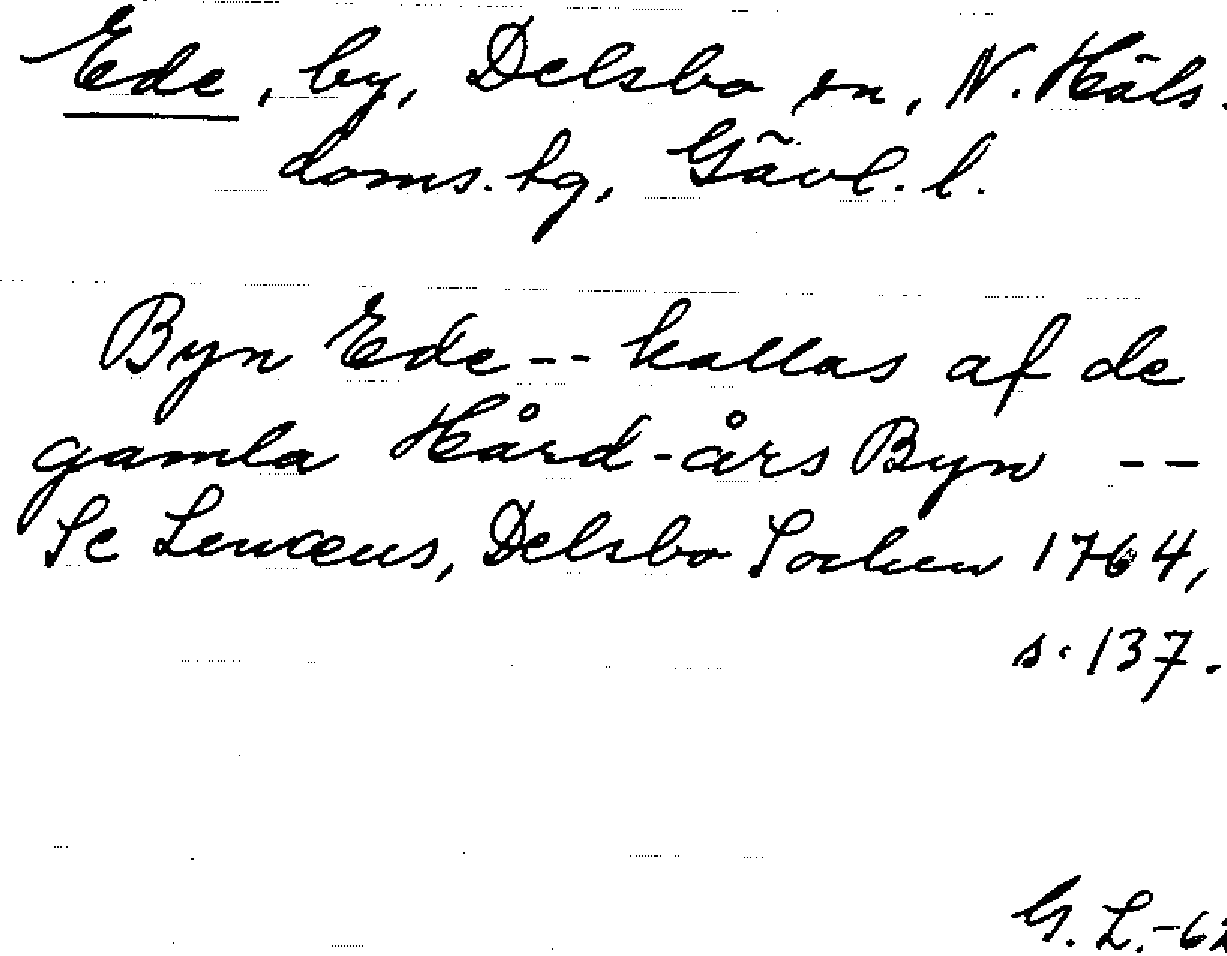 Ede, by, Delsbo sn, N. Häls.
doms. tg, Gävl. l.
Byn Ede -- kallas af de
gamla Hård-års Byn --
Se Lenæus, Delsbo Socken 1764,
s. 137.
G. L. -62